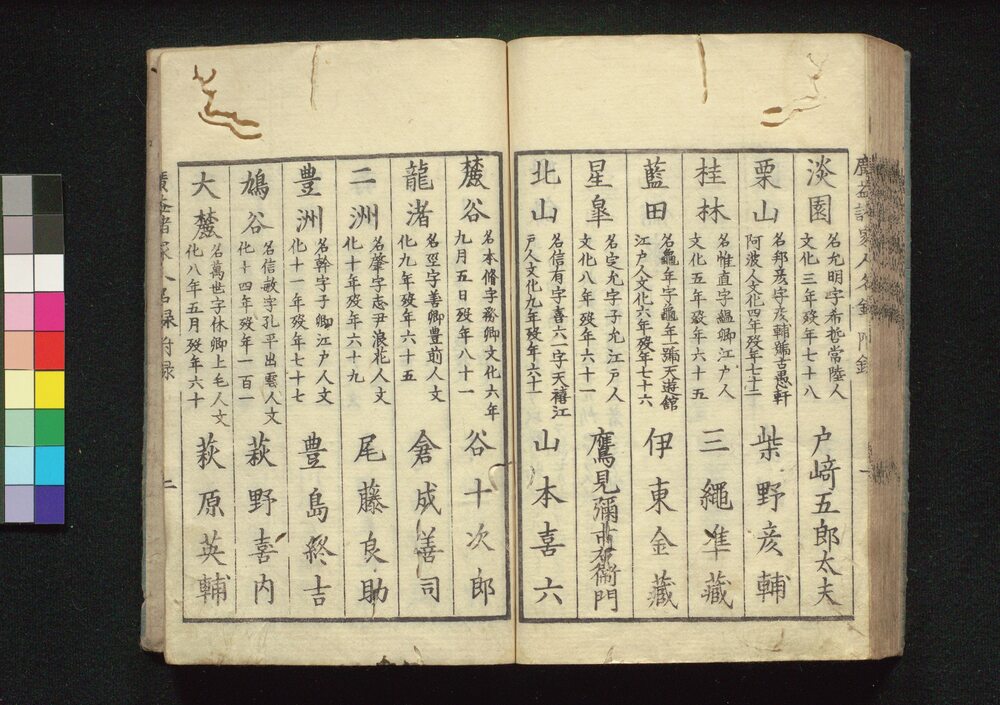 淡園
名允明字希哲常陸人
文化三年歿年七十八
戸﨑五郎太夫
栗山
名邦彦字彦輔號古愚軒
阿波人文化四年歿年七十二
柴野彦輔
桂林
名惟直字緼卿江戸人
文化五年歿年六十五
三繩準藏
藍田
名龜年字龜年一號天遊館
江戸人文化六年歿年七十六
伊東金藏
星皐
名定允字子允江戸人
文化八年歿年六十一
鷹見彌市右衞門
北山
名信有字喜六一字天禧江
戸人文化九年歿年六十一
山本喜六
麓谷
名本脩字務卿文化六年
九月五日歿年八十一
谷十次郎
龍渚
名巠字善卿豊前人文
化九年歿年六十五
倉成善司
二洲
名肇字志尹浪花人文
化十年歿年六十九
尾藤良助
豊洲
名幹字子卿江戸人文
化十一年歿年七十七
豊島終吉
鳩谷
名信敏字孔平出雲人文
化十四年歿年一百一
萩野喜内
大麓
名萬世字休卿上毛人文
化八年五月歿年六十
萩原英輔
廣益諸家人名録附録
二